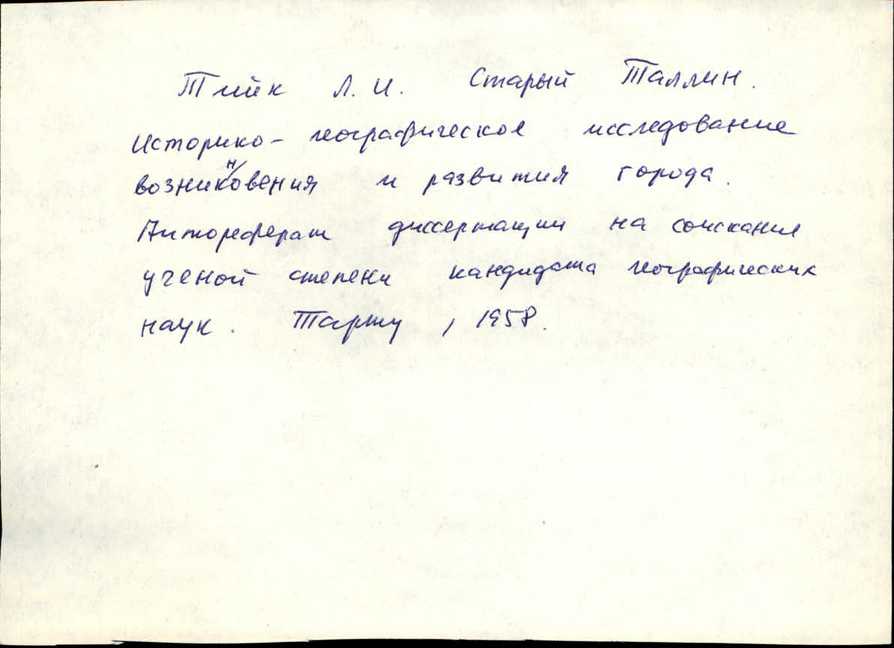 Тийк Л. И. Старый Таллин.
Историко-географическое исследование
возникновения и развития города.
Автореферат диссертации на соискание
ученой степени кандидата географических
наук. Тарту, 1958.